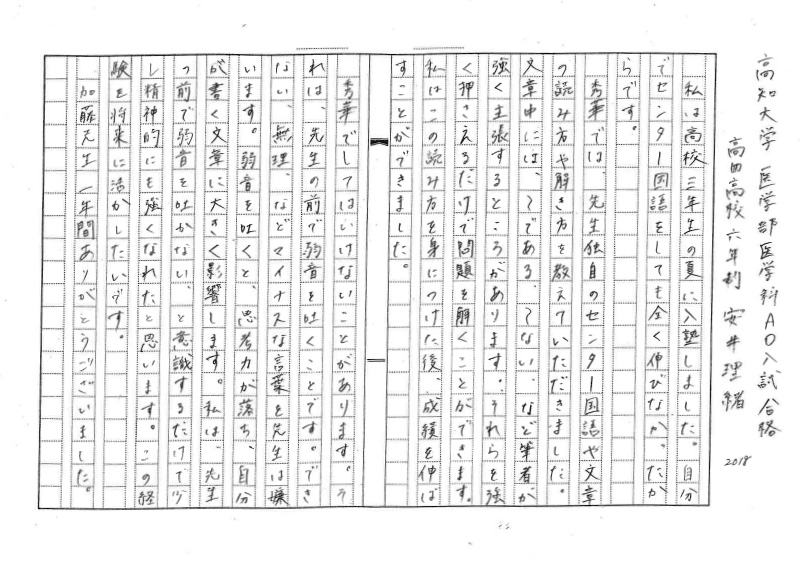 高知大学 医学部医学科AO入試合格
高田高校六年制 安井理緒
2018
私は高校三年生の夏に入塾しました。自分
でセンター国語をしても全く伸びなかったか
らです。
秀華では、先生独自のセンター国語や文章
の読み方や解き方を教えていただきました。
文章中には、〜である、〜ない、など筆者が
強く主張するところがあります。それらを強
く押さえるだけで問題を解くことができます。
私はこの読み方を身につけた後、成績を伸ば
すことができました。
秀華でしてはいけないことがあります。そ
れは、先生の前で弱音を吐くことです。でき
ない、無理、などマイナスな言葉を先生は嫌
います。弱音を吐くと、思考力が落ち、自分
が書く文章に大きく影響します。私は、先生
の前で弱音を吐かない、と意識するだけで少
し精神的にも強くなれたと思います。この経
験を将来に活かしたいです。
加藤先生一年間ありがとうございました。